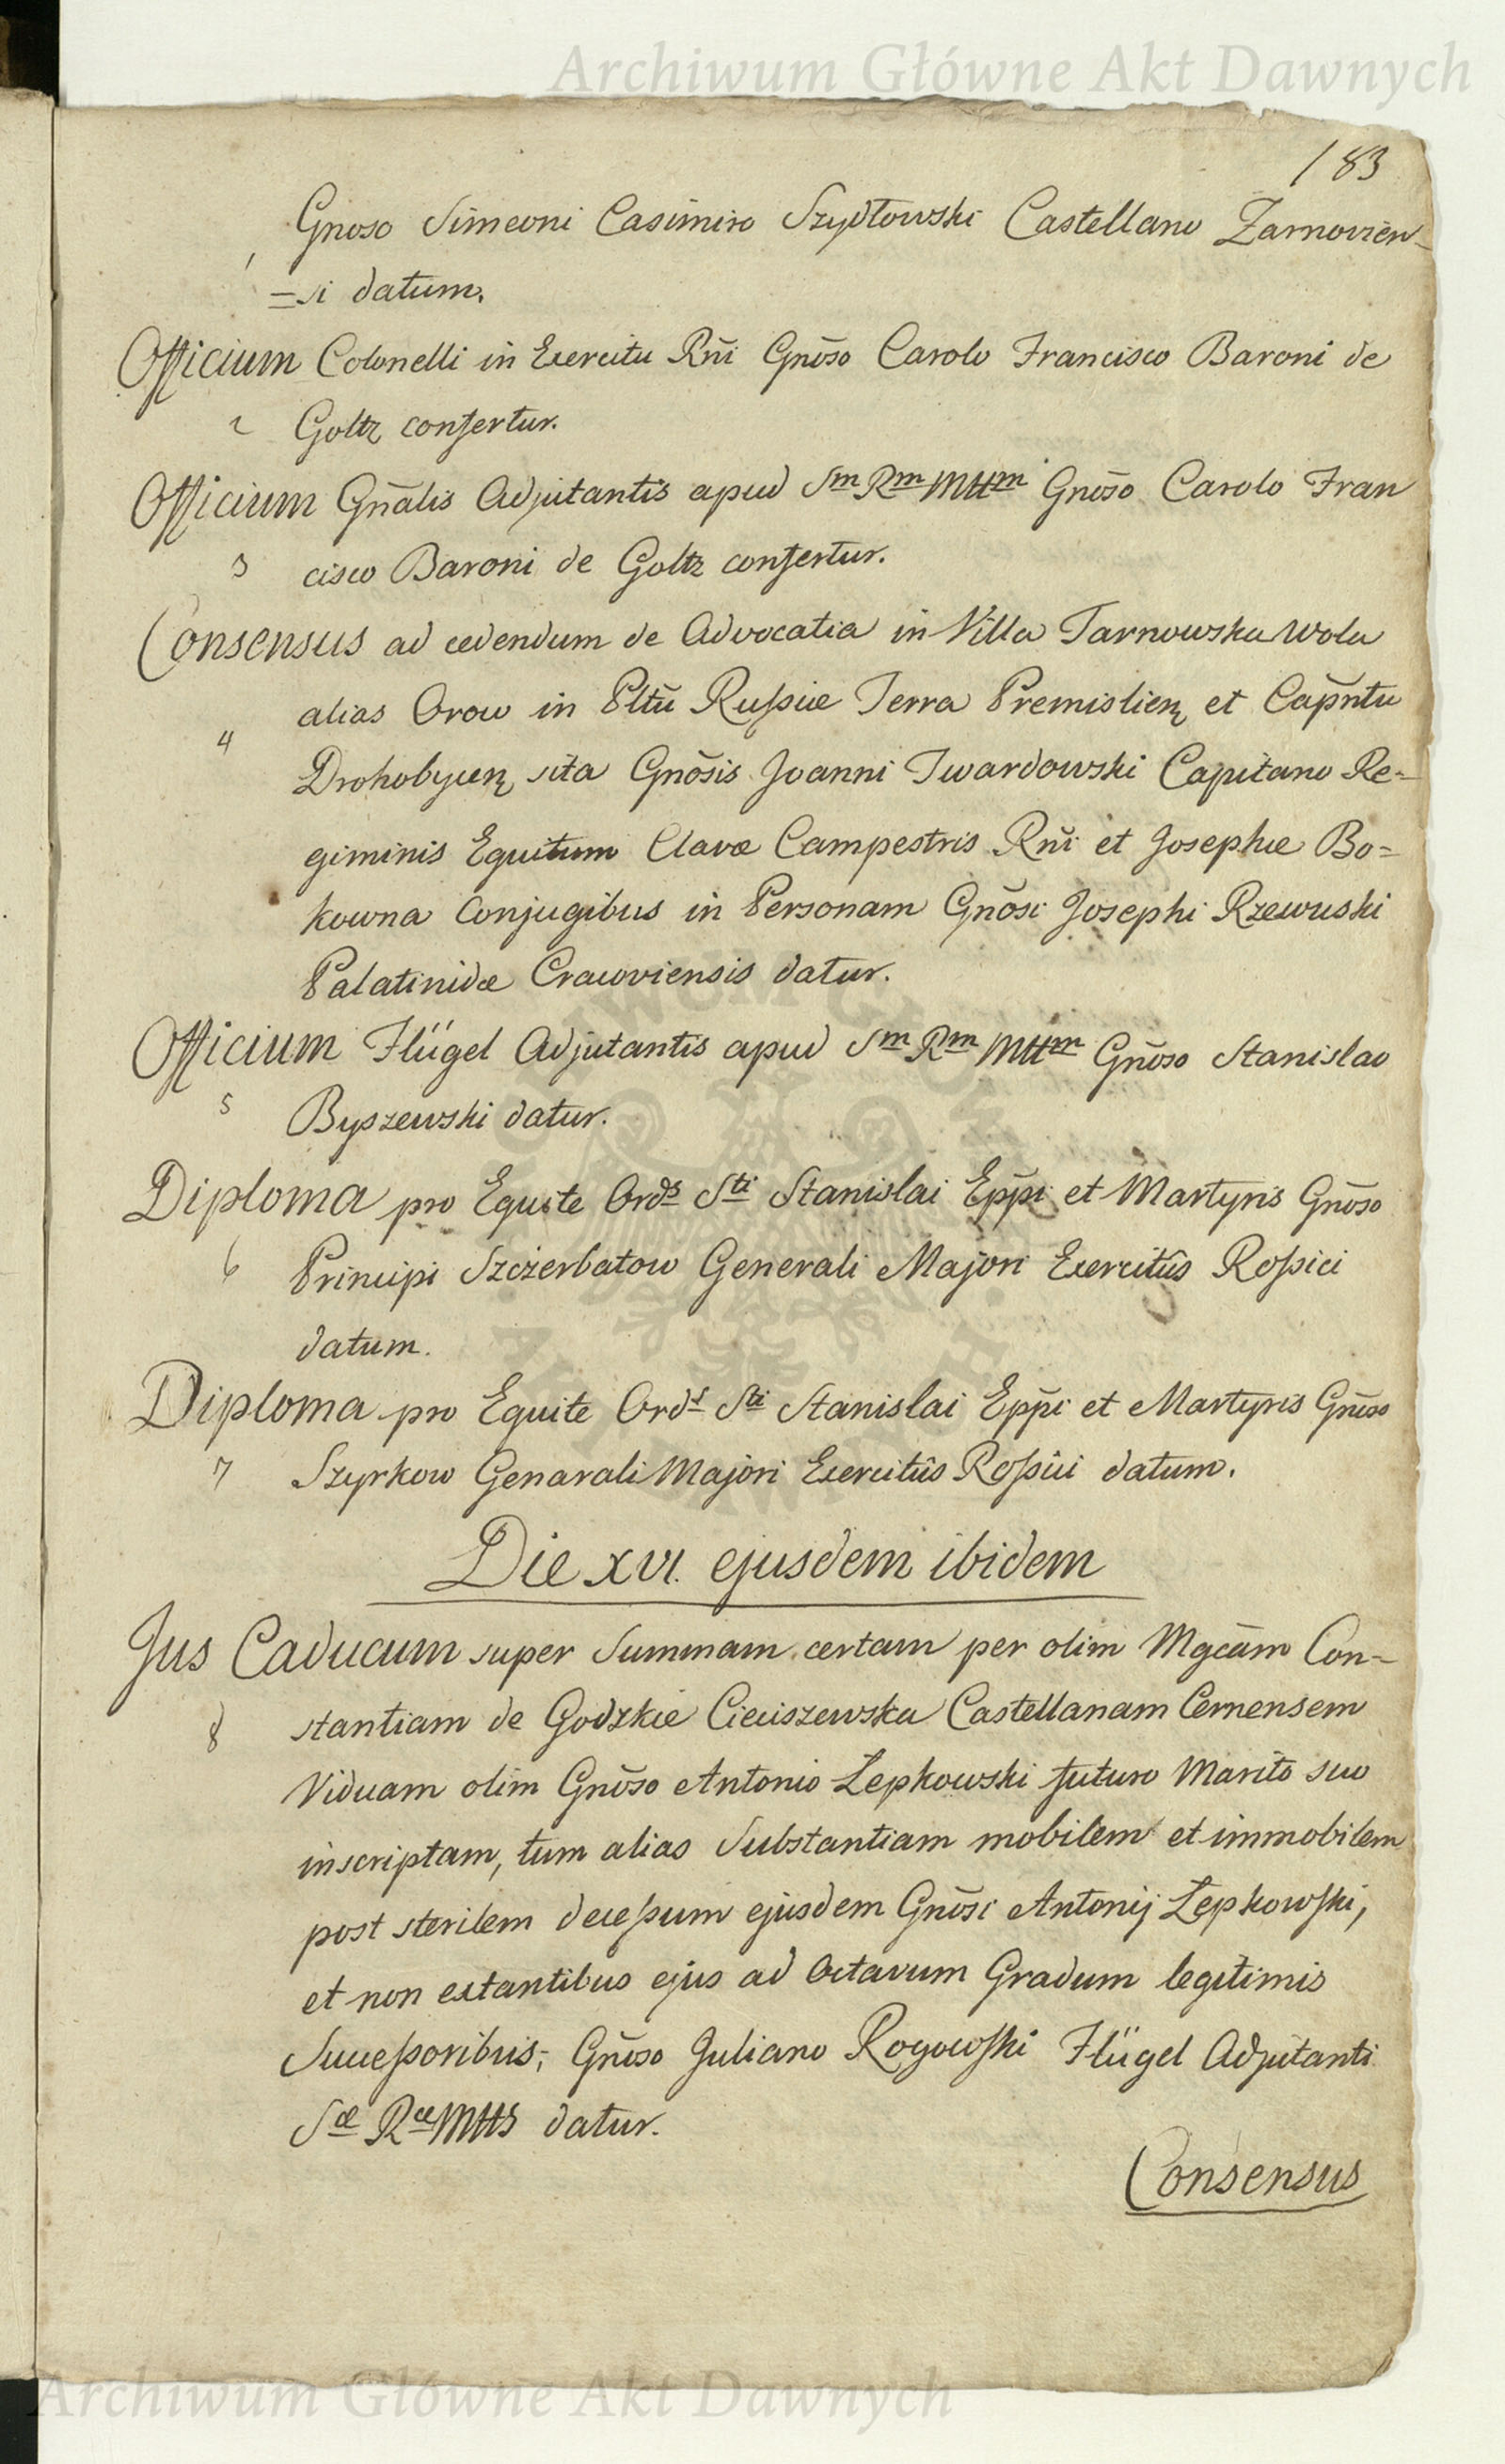 Archiwum Główne Akt Dawnych
183
Gnoso Simeoni Casimiro Szydłowski Castellano Zarnovien-
1
=si datum.
Officium Colonelli in Exercitu Rñi Gnõso Carolo Francisco Baroni de
2 Goltz confertur.
Officium Gñalis Adjutantis apud Sm Rm Mttm Gnõso Carolo Fran
3 cisco Baroni de Goltz confertur.
Consensus ad cedendum de Advocatia in Villa Tarnowska Wola
alias Orow in Pltũ Russiæ Terra Premislien et Capñtu
4
Drohobycen sita Gnõsis Joanni Twardowski Capitano Re-
giminis Equitum Clavæ Campestris Rñi et Josephæ Bo=
kowna Conjugibus in Personam Gnõsi Josephi Rzewuski
Palatinidæ Cracoviensis datur.
Officium Flügel Adjutantis apud Sm Rm Mttm Gnõso Stanislao
5 Byszewski datur.
Diploma pro Equite Ords Sti Stanislai Epp̃i et Martyris Gnõso
6 Principi Szczerbatow Generali Majori Exercitûs Rossici
datum.
Diploma pro Equite Ords Sti Stanislai Epp̃i et Martyris Gnõso
7 Szyrkow Genarali Majori Exercitûs Rossici datum.
Die XVI. ejusdem ibidem
Jus Caducum super Summam certam per olim Mgcãm Con-
8 stantiam de Godzkie Cieciszewska Castellanam Cernensem
Viduam olim Gnõso Antonio Łepkowski futuro Marito suo
inscriptam, tum alias Substantiam mobilem et immobilem
post sterilem decessum ejusdem Gnõsi Antonij Łepkowski,
et non extantibus ejus ad Octavum Gradum legitimis
Successoribus; Gnõso Juliano Rogowski Flügel Adjutanti
Sæ Ræ Mtts datur.
Consensus
Archiwum Główne Akt Dawnych